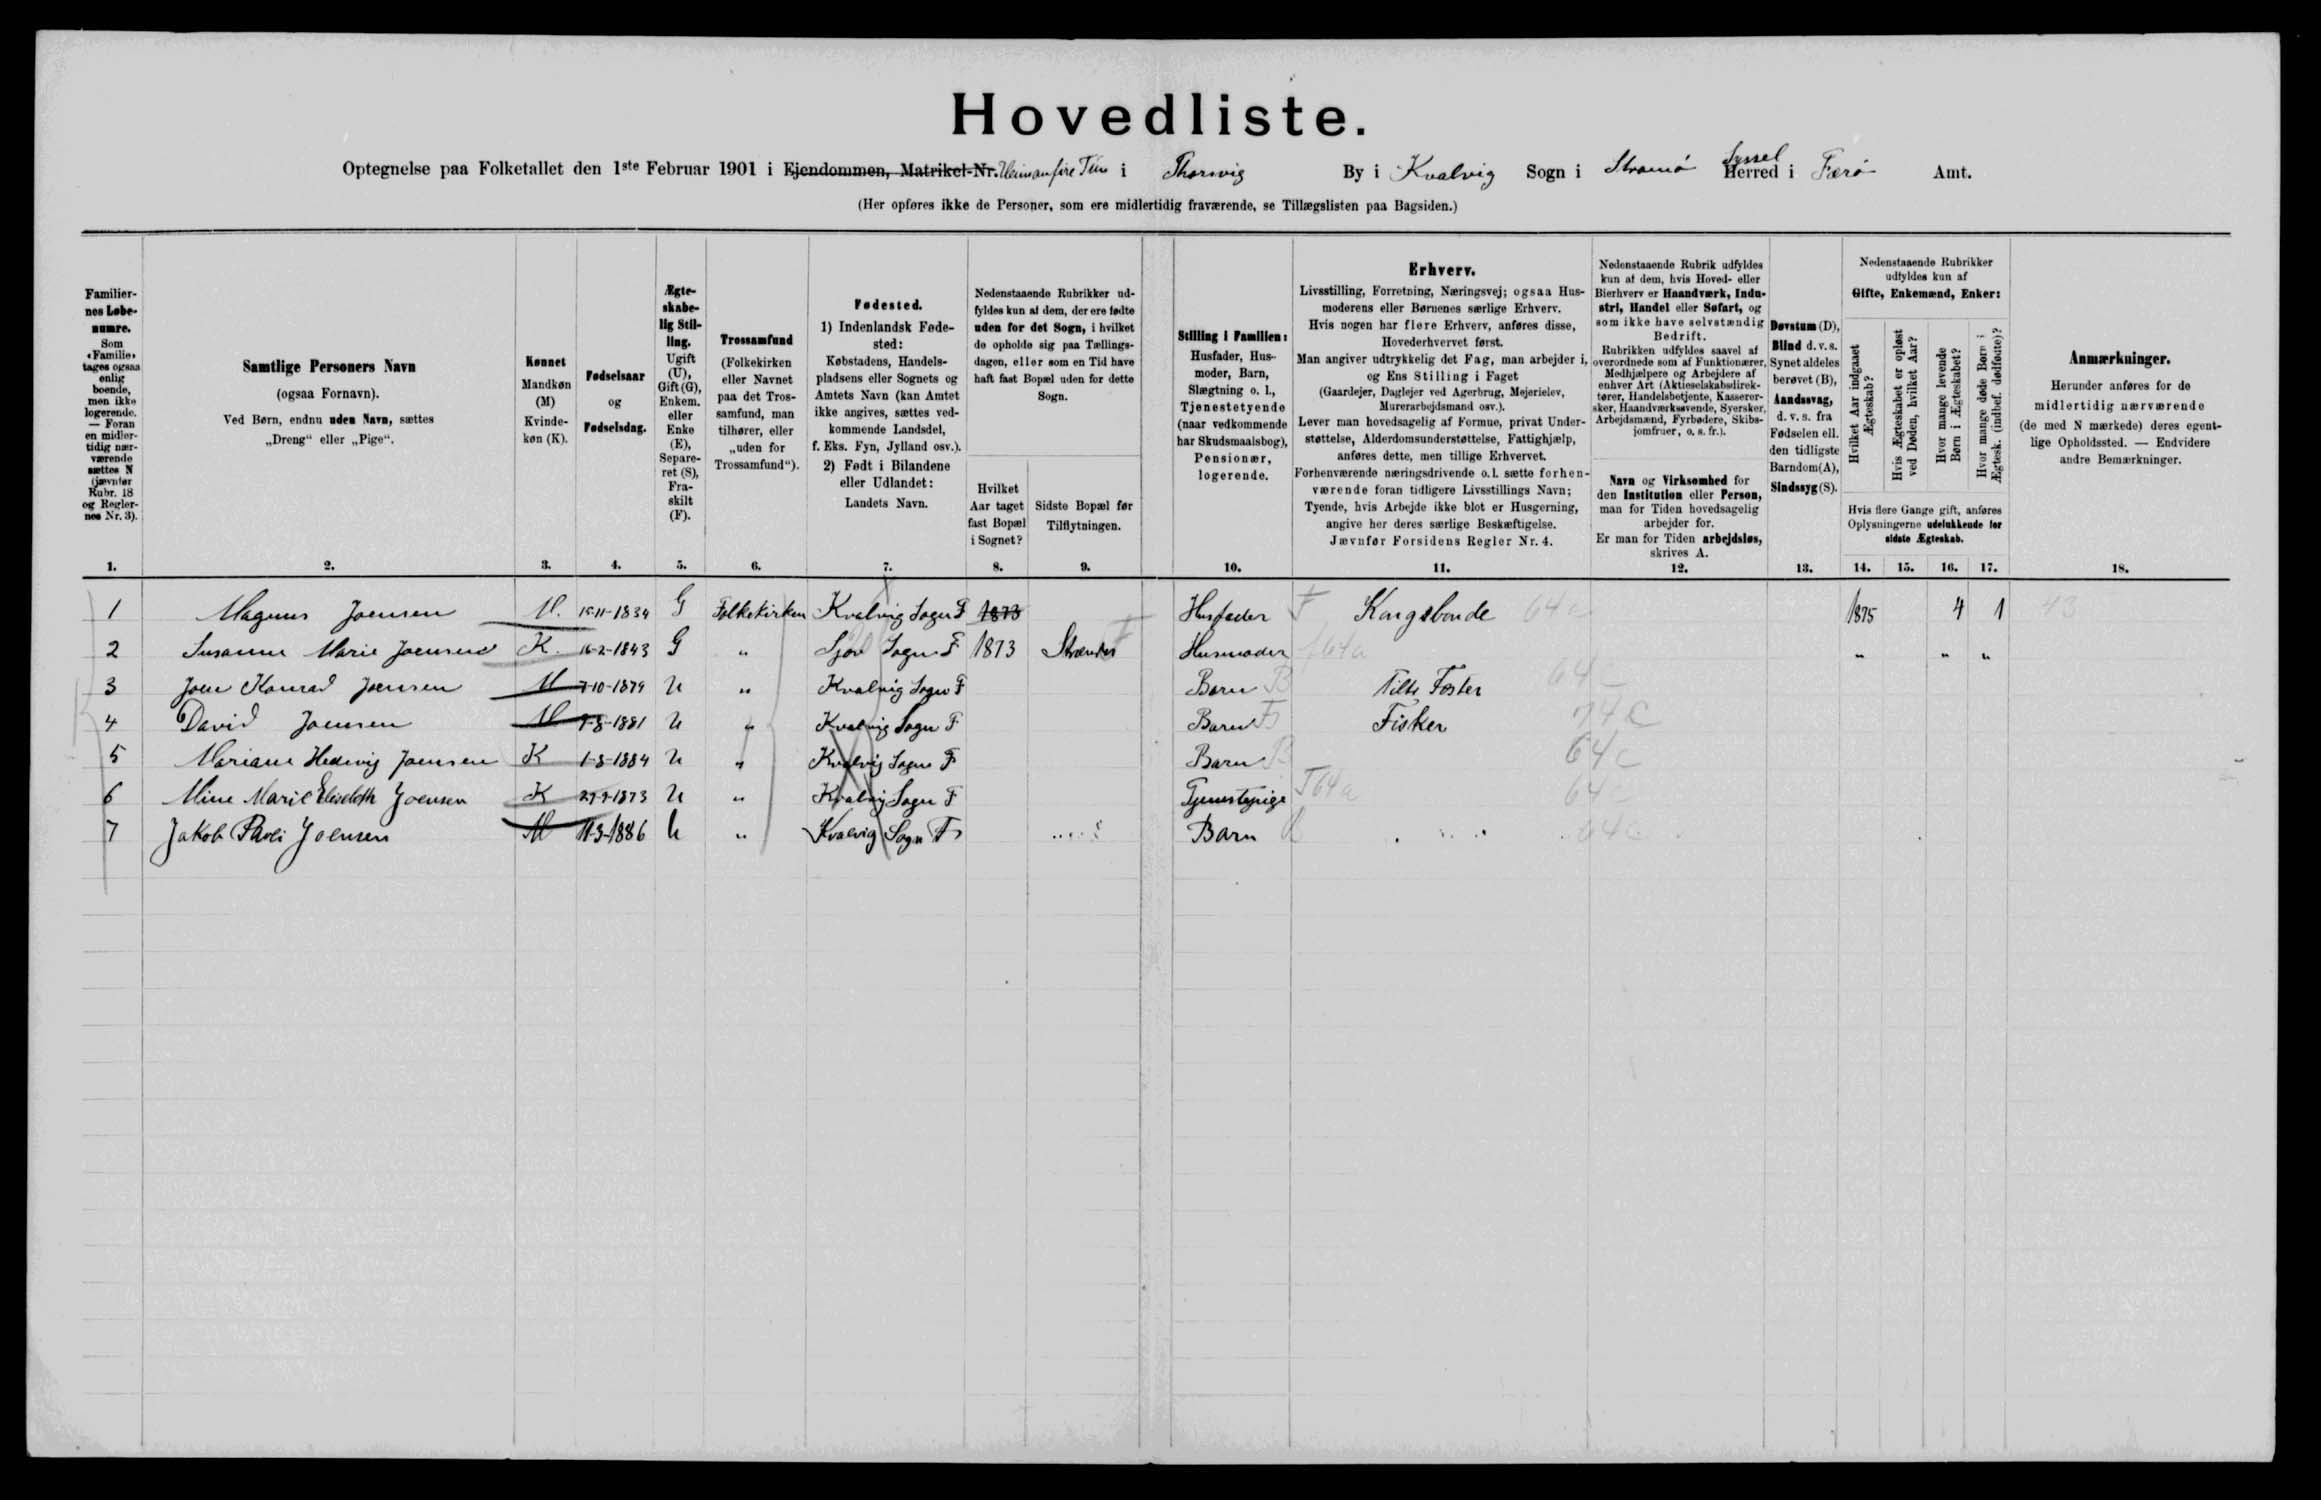 Hovedliste.
Optegnelse paa Folketallet den 1ste Februar 1901 i Ejendommen, Matrikel-Nr. i Thorsvig By i Kvalvig Sogn i Strømø Syssel Herred i Færø Amt.
(Her opføres ikke de Personer, som ere midlertidig fraværende, se Tillægslisten paa Bagsiden.)
Familiernes Løbenumre.
Som «Familie» tages ogsaa enlig boende, men ikke logerende. — Foran en midlertidig nærværende sættes N (jævnfør Rubr. 18 og Reglernes Nr. 3).
Samtlige Personers Navn
(ogsaa Fornavn).
Ved Børn, endnu uden Navn, sættes
„Dreng“ eller „Pige“.
Kønnet
Mandkøn (M)
Kvindekøn (K).
Fødselsaar
og
Fødselsdag.
Ægteskabelig Stilling.
Ugift (U), Gift (G), Enkem. eller Enke (E), Separeret (S), Fraskilt (F).
Trossamfund
(Folkekirken eller Navnet paa det Trossamfund, man tilhører, eller „uden for Trossamfund“).
Fødested.
1) Indenlandsk Fødested:
Købstadens, Handelspladsens eller Sognets og Amtets Navn (kan Amtet ikke angives, sættes vedkommende Landsdel, f. Eks. Fyn, Jylland osv.).
2) Født i Bilandene eller Udlandet:
Landets Navn.
Nedenstaaende Rubrikker udfyldes kun af dem, der ere fødte uden for det Sogn, i hvilket de opholde sig paa Tællingsdagen, eller som en Tid have haft fast Bopæl uden for dette Sogn.
Hvilket Aar taget fast Bopæl i Sognet?
Sidste Bopæl før Tilflytningen.
Stilling i Familien:
Husfader, Husmoder, Barn, Slægtning o. l., Tjenestetyende (naar vedkommende har Skudsmaalsbog), Pensionær, logerende.
Erhverv.
Livsstilling, Forretning, Næringsvej; ogsaa Husmoderens eller Børnenes særlige Erhverv.
Hvis nogen har flere Erhverv, anføres disse, Hovederhvervet først.
Man angiver udtrykkelig det Fag, man arbejder i, og Ens Stilling i Faget
(Gaardejer, Daglejer ved Agerbrug, Mejerielev, Murerarbejdsmand osv.).
Lever man hovedsagelig af Formue, privat Understøttelse, Alderdomsunderstøttelse, Fattighjælp, anføres dette, men tillige Erhvervet.
Forhenværende næringsdrivende o. l. sætte forhenværende foran tidligere Livsstillings Navn;
Tyende, hvis Arbejde ikke blot er Husgerning, angive her deres særlige Beskæftigelse.
Jævnfør Forsidens Regler Nr. 4.
Nedenstaaende Rubrik udfyldes kun af dem, hvis Hoved- eller Bierhverv er Haandværk, Industri, Handel eller Søfart, og som ikke have selvstændig Bedrift.
Rubrikken udfyldes saavel af overordnede som af Funktionærer, Medhjælpere og Arbejdere af enhver Art (Aktieselskabsdirektører, Handelsbetjente, Kasserersker, Haandværkssvende, Syersker, Arbejdsmænd, Fyrbødere, Skibsjomfruer, o. s. fr.).
Navn og Virksomhed for den Institution eller Person, man for Tiden hovedsagelig arbejder for.
Er man for Tiden arbejdsløs, skrives A.
Døvstum (D), Blind d. v. s. Synet aldeles berøvet (B), Aandssvag, d. v. s. fra Fødselen ell. den tidligste Barndom (A), Sindssyg (S).
Nedenstaaende Rubrikker udfyldes kun af
Gifte, Enkemænd, Enker:
Hvilket Aar indgaaet Ægteskab?
Hvis Ægteskabet er opløst ved Døden, hvilket Aar?
Hvor mange levende Børn i Ægteskabet?
Hvor mange døde Børn i Ægtesk. (indbef. dødfødte)?
Hvis flere Gange gift, anføres Oplysningerne udelukkende for sidste Ægteskab.
Anmærkninger.
Herunder anføres for de midlertidig nærværende (de med N mærkede) deres egentlige Opholdssted. — Endvidere andre Bemærkninger.
1. 2. 3. 4. 5. 6. 7. 8. 9. 10. 11. 12. 13. 14. 15. 16. 17. 18.
1 Magnus Joensen M. 15-11-1834 G Folkekirken Kvalvig Sogn F 1873 Husfader F Kongsbonde 64c 1875 4 1 43
2 Susanne Marie Joensen K. 16-2-1843 G „ Sjov Sogn F 1873 Strænder F Husmoder f64a „ „ „
3 Joen Konrad Joensen M 7-10-1879 U „ Kvalvig Sogn F Barn B 64c
4 David Joensen M 9-8-1881 U „ Kvalvig Sogn F Barn F Fisker 74c
5 Mariane Hedevig Joensen K 1-8-1884 U „ Kvalvig Sogn F Barn B 64c
6 Mine Marie Elisebeth Joensen K 29-9-1873 U „ Kvalvig Sogn F Tjenestepige T64a 64c
7 Jakob Pauli Joensen M 11-3-1886 U „ Kvalvig Sogn F Barn 64c